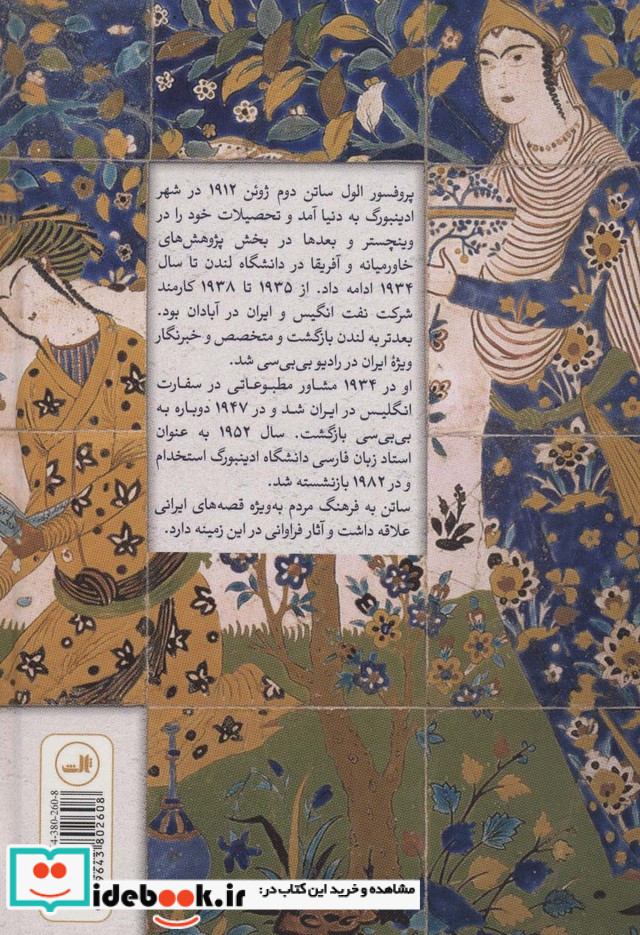 پروفسور الول ساتن دوم ژوئن ۱۹۱۲ در شهر
ادینبورگ به دنیا آمد و تحصیلات خود را در
وینچستر و بعدها در بخش پژوهش‌های
خاورمیانه و آفریقا در دانشگاه لندن تا سال
۱۹۳۴ ادامه داد. از ۱۹۳۵ تا ۱۹۳۸ کارمند
شرکت نفت انگیس و ایران در آبادان بود.
بعدتر به لندن بازگشت و متخصص و خبرنگار
ویژهٔ ایران در رادیو بی‌بی‌سی شد.
او در ۱۹۳۴ مشاور مطبوعاتی در سفارت
انگلیس در ایران شد و در ۱۹۴۷ دوباره به
بی‌بی‌سی بازگشت. سال ۱۹۵۲ به عنوان
استاد زبان فارسی دانشگاه ادینبورگ استخدام
و در ۱۹۸۲ بازنشسته شد.
ساتن به فرهنگ مردم به‌ویژه قصه‌های ایرانی
علاقه داشت و آثار فراوانی در این زمینه دارد.
ثالث
4-380-260-8
7643802608
مشاهده و خرید این کتاب در:
idebook.ir